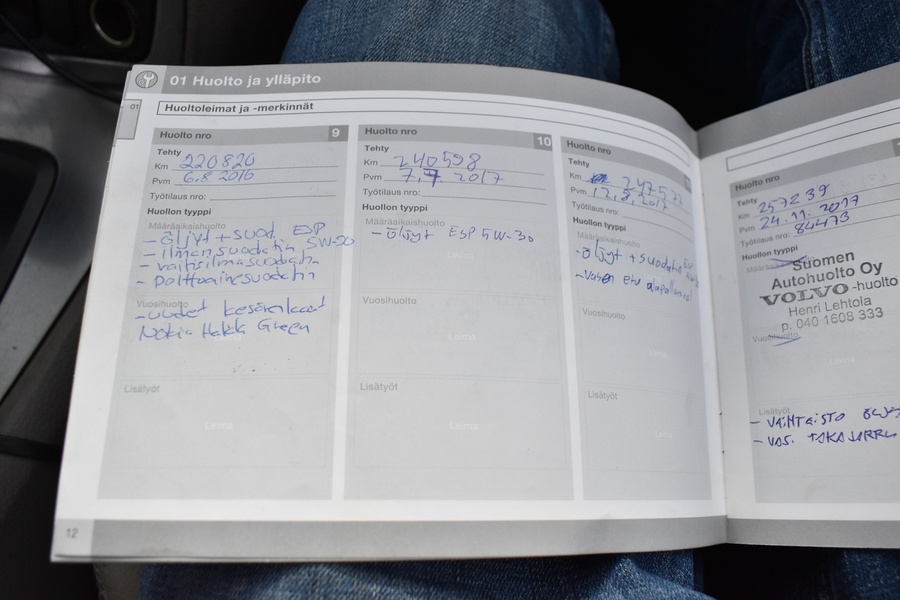 01 Huolto ja ylläpito
01
Huoltoleimat ja -merkinnät
Huolto nro 9
Tehty
Km 220820
Pvm 6.8 2016
Työtilaus nro:
Huollon tyyppi
Määräaikaishuolto
- Öljyt + suod. ESP 5W-30
- ilmansuodatin
- raitisilmasuodatin
- polttoainesuodatin
Vuosihuolto
- uudet kesärenkaat
Nokia Hakk Green
Leima
Lisätyöt
Leima
Huolto nro 10
Tehty
Km 240598
Pvm 7.7 2017
Työtilaus nro:
Huollon tyyppi
Määräaikaishuolto
- öljyt ESP 5W-30
Leima
Vuosihuolto
Leima
Lisätyöt
Leima
Huolto nro
Tehty
Km
Pvm 12.8.2017
Työtilaus nro:
Huollon tyyppi
Määräaikaishuolto
- öljyt + suodatin ESP
- vasen etu alapallonivel
Vuosihuolto
Leima
Lisätyöt
Leima
Huolto nro
Tehty
Km 257239
Pvm 24.11.2017
Työtilaus nro: 84473
Huollon tyyppi
Suomen
Autohuolto Oy
VOLVO-huolto
Henri Lehtola
p. 040 1608 333
Vuosihuolto
Leima
Lisätyöt
- VAIHTEISTO ÖLJY
- VAS. TAKAJARRU
12